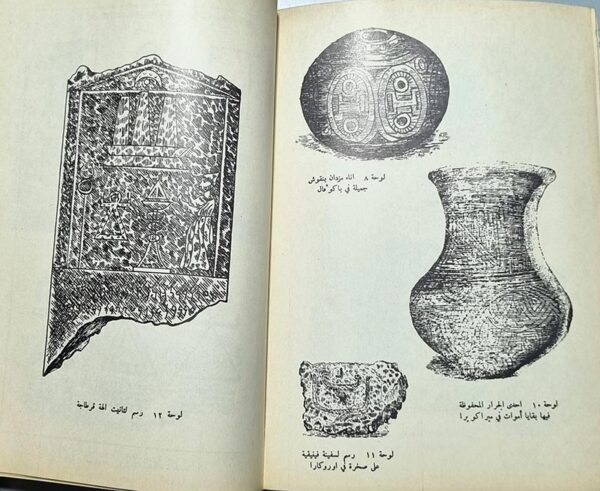 لوحة ٨ اناء مزدان بنقوش
جميلة في باكوفال
لوحة ١٠ احدى الجرار المحفوظة
فيها بقايا أموات في ميراكويرا
لوحة ١١ رسم لسفينة فينيقية
على صخرة في اوروكارا
لوحة ١٢ رسم لتانيت الهة قرطاجة